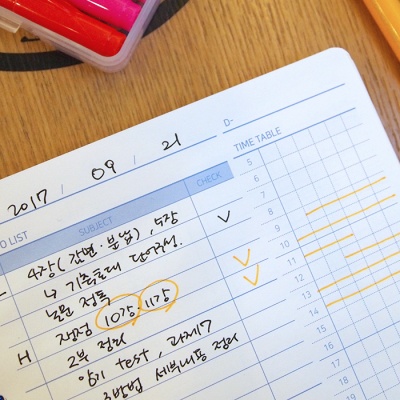 2017 / 09 / 21
D-
O LIST SUBJECT CHECK
TIME TABLE
4장(감면·부납), 5장
너 기출문제 단어정리.
논문 정독
10강·11강
H 2부 정리
암기 test, 과제7
세부내용 정리
5
6
7
8
9
10
11
12
13
14
15
16
17
18
19